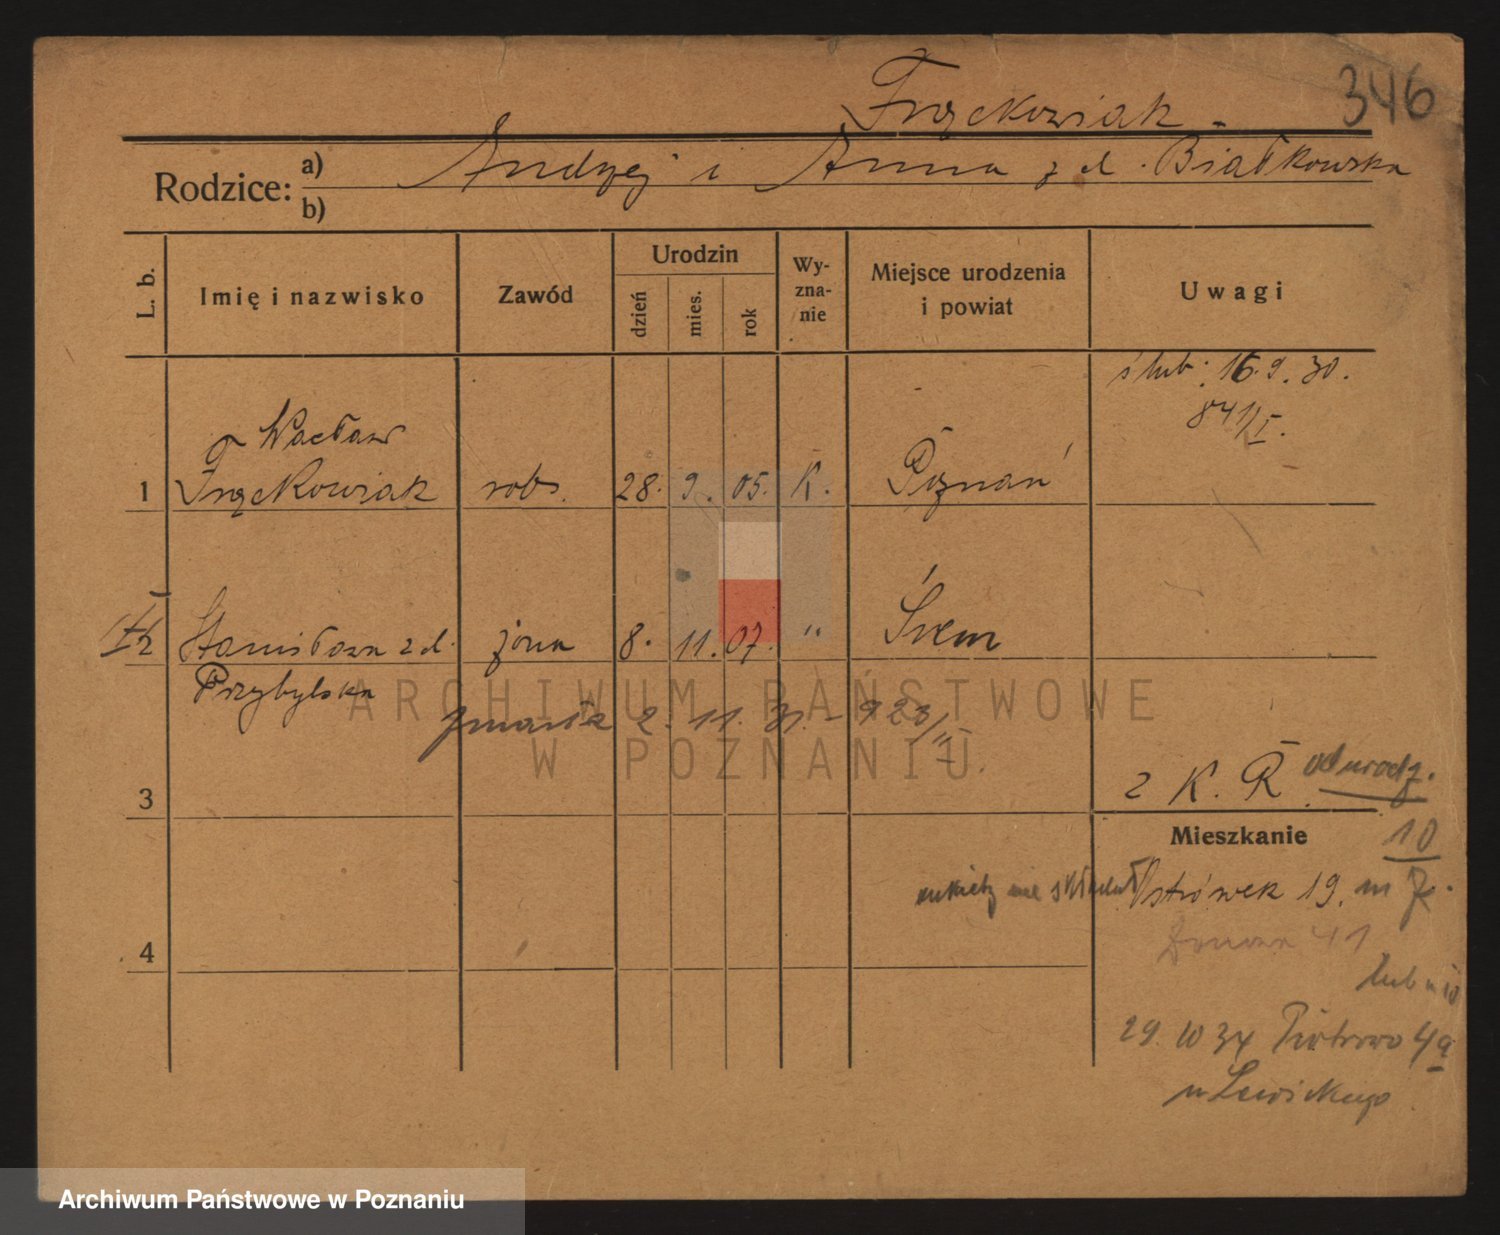 346
Frąckowiak
Rodzice: a) Andrzej i Anna z d. Białkowska
b)
L. b.
Imię i nazwisko
Zawód
Urodzin
dzień
mies.
rok
Wy-
zna-
nie
Miejsce urodzenia
i powiat
Uwagi
ślub: 16.9.30.
841/I.
Wacław
1 Frąckowiak rob. 28. 9. 05. K. Poznań
2 Stanisława z d. żona 8. 11. 07. " Śrem
Przybylska
zmarła 2. 11. 31. - 923/II
ARCHIWUM PAŃSTWOWE
W POZNANIU
z K. R. od urodz.
3
Mieszkanie
10
ankiety nie składał Ostrówek 19. m 7.
4
41
29. 10 34 Piotrowo 4a
u Lewickiego
Archiwum Państwowe w Poznaniu